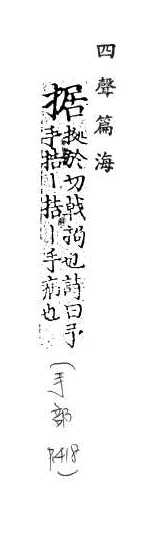 四聲篇海
据於切戟挶也詩曰予
手拮丨拮丨手病也
(手部 P.418)